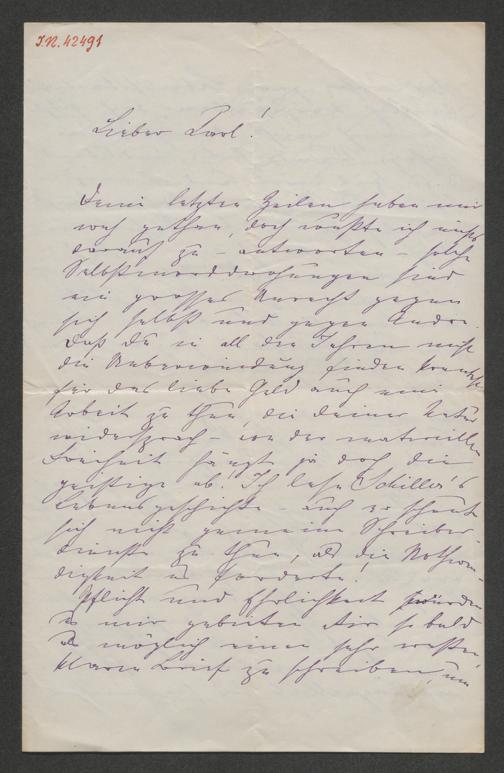 I.N. 42491
Lieber Karl!
Deine letzten Zeilen haben mir
weh gethan, doch wußte ich nichts
darauf zu – antworten – solche
Selbstmorddrohungen sind
ein grosses Unrecht gegen
sich selbst und gegen Andre.
Daß Du in all den Jahren nicht
die Ueberwindung finden konntest
für das liebe Geld auch eine
Arbeit zu thun, die Deiner Natur
widersprach – von der materiellen
Freiheit hängt ja doch die
geistige ab. Ich lese Schiller's
Lebensgeschichte – auch er scheute
sich nicht gemeine Schreiber-
dienste zu thun, als die Nothwen-
digkeit es forderte!
Pflicht und Ehrlichkeit würden
es mir gebieten Dir so bald
als möglich einen sehr
klaren Brief zu schreiben, um